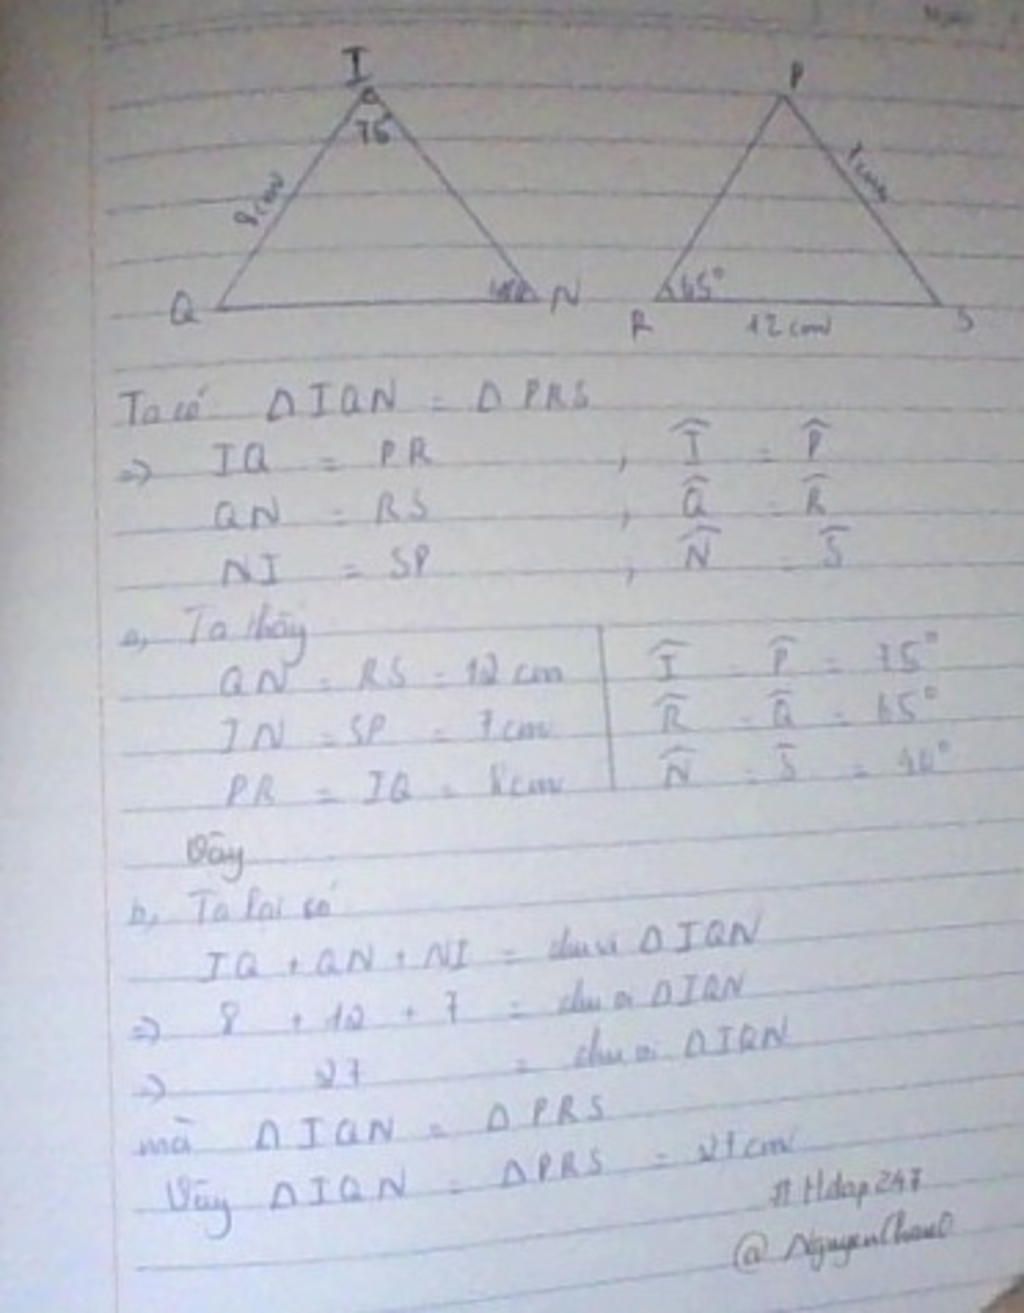 I
P
75°
8cm
7cm
Q
N
65°
R
12 cm
S
Ta có ΔIQN = ΔPRS
=> IQ = PR , Î = P̂
QN = RS , Q̂ = R̂
NI = SP , N̂ = Ŝ
a, Ta thấy
QN = RS = 12 cm | Î = P̂ = 75°
IN = SP = 7cm | R̂ = Q̂ = 65°
PR = IQ = 8cm | N̂ = Ŝ = 40°
Vậy
b, Ta lại có
IQ + QN + NI = chu vi ΔIQN
=> 8 + 12 + 7 = chu vi ΔIQN
=> 27 = chu vi ΔIQN
mà ΔIQN = ΔPRS
Vậy ΔIQN = ΔPRS = 27cm
# Hdap247
@ NguyenChau0